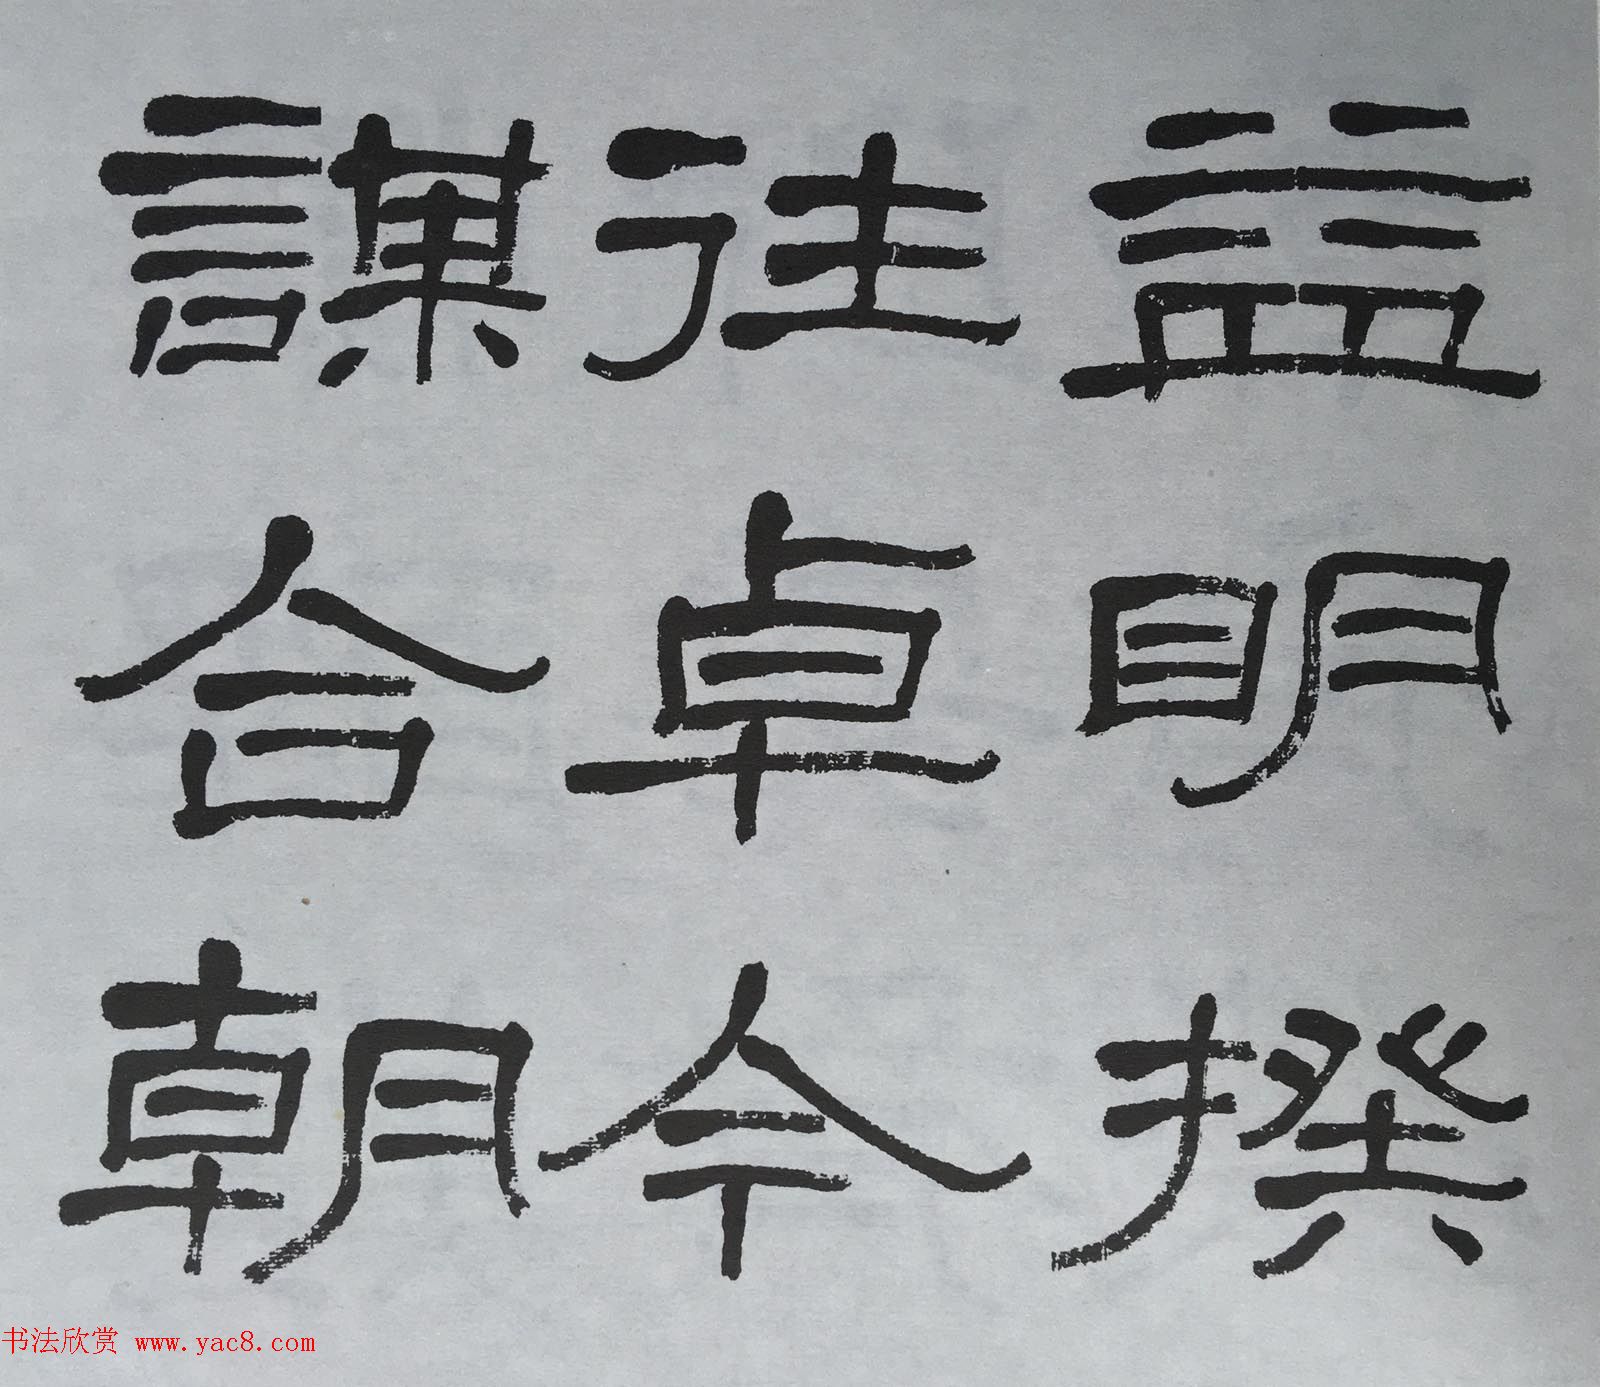 益明揆
往卓今
謀合朝
书法欣赏 www.yac8.com